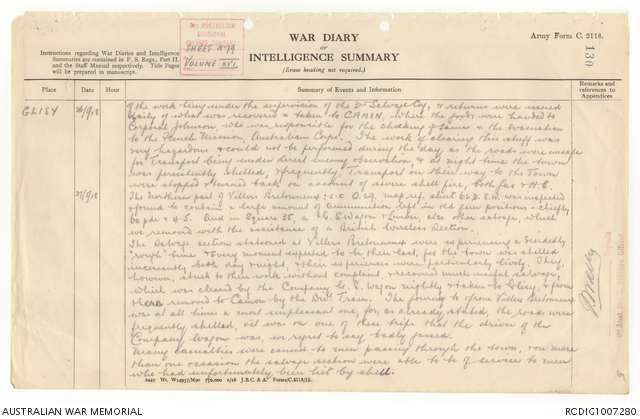 WAR DIARY
OR
INTELLIGENCE SUMMARY
(Erase heading not required.)
Army Form C. 2118.
130
Instructions regarding War Diaries and Intelligence
Summaries are contained in F. S. Regs., Part II.
and the Staff Manual respectively. Title Pages
will be prepared in manuscript.
SHEET No 79
VOLUME XVI
Place
Date
Hour
Summary of Events and Information
Remarks and
references to
Appendices
GLISY
of the work being under the supervision of the 2nd Salvage Coy, & returns were issued
daily of what was recovered & taken to CAMON, where the goods were handed to
Corporal Johnson, who was responsible for the checking of same & the evacuation
to the French Mission, Australian Corps. The work of clearing this stuff was
very hazardous & could not be performed during the day, as the roads were unsafe
for transport being under direct enemy observation, & at night time the town
was persistently shelled, & frequently, transport on their way to the Town
were stopped & turned back on account of severe shell fire, both gas & H.E.
The Northern part of Villers Bretonneux, map ref. sheet 62D was inspected
& found to contain a large amount of Ammunition left in old gun positions - chiefly
18 pdr & 4.5. And in Square 25, a G.S. Wagon & Limber, also other salvage, which
we removed with the assistance of a British Wireless Section.
The Salvage section stationed at Villers Bretonneux were experiencing a decidedly
"rough" time & every moment expected to be their last, for the town was shelled
incessantly both day & night, & their experiences were particularly lively. They,
however, stuck to their work without complaint, & recovered much useful salvage,
which was cleared by the Company G.S. Wagon nightly & taken to Glisy, & from
there removed to Camon by the Divl Train. The journey to & from Villers Bretonneux
was at all times a most unpleasant one, for, as already stated, the roads were
frequently shelled, & it was on one of these trips that the driver of the
Company wagon was, we regret to say badly gassed.
Many casualties were caused to men passing through the town, & on more
than one occasion the salvage section were able to be of service to men
who had unfortunately been hit by shell.
AUSTRALIAN WAR MEMORIAL
RCDIG1007280